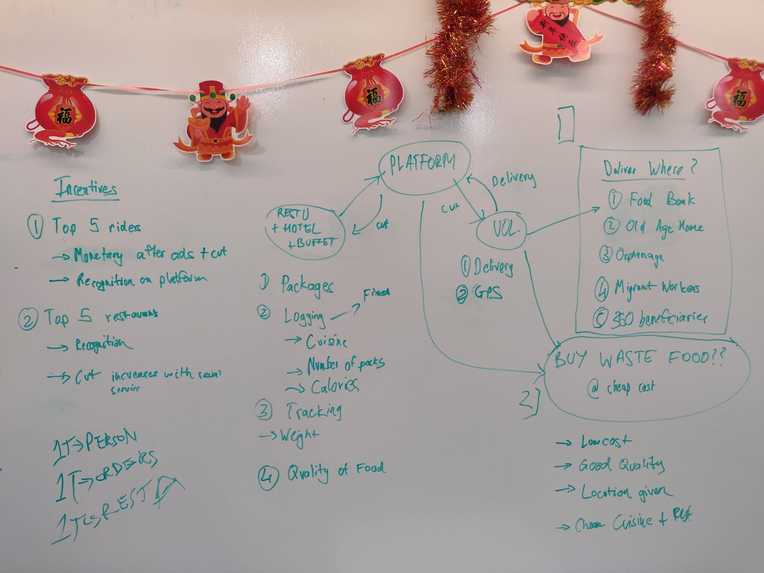 福
福
福
Incentives
① Top 5 rides
→ Monetary after ads + cut
→ Recognition on platform
② Top 5 restaurants
→ Recognition
→ Cut increases with social service
1T → PERSON
1T →
1T → REST
PLATFORM
Delivery
cut
cut
RESTU
+ HOTEL
+ BUFFET
VOL.
① Delivery
② GPS
1) Packages
② Logging → Fixed
→ Cuisine
→ Number of packs
→ Calories
③ Tracking
→ Weight
④ Quality of Food
Deliver Where?
① Food Bank
② Old Age Home
③ Orphanage
④ Migrant Workers
beneficiaries
2]
BUY WASTE FOOD??
@ cheap cost
→ Low cost
→ Good Quality
→ Location given
→ Choose Cuisine +